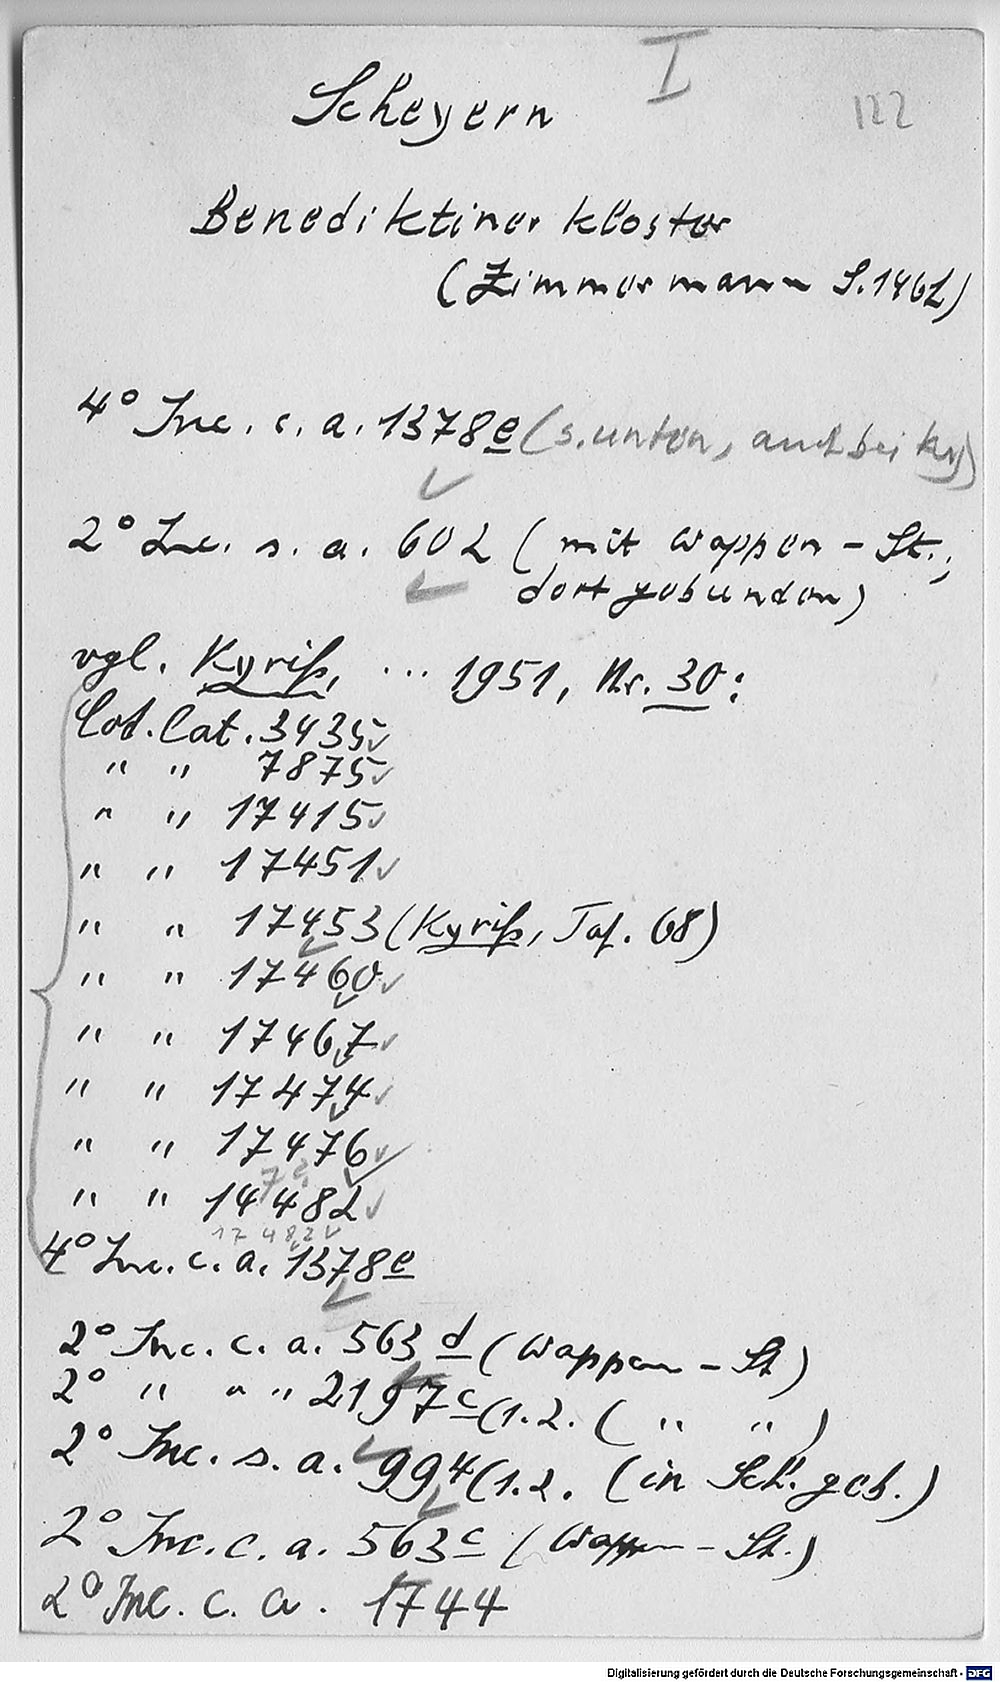 I
122
Scheyern
Benediktinerkloster
(Zimmermann S. 146 L)
4° Inc. c. a. 1378e (s. unten, auch bei Ky)
2° Inc. s. a. 602 (mit Wappen-St.;
dort gebunden)
vgl. Kyriß, ... 1951, Nr. 30:
Cod. lat. 3435
" " 7875
" " 17415
" " 17451
" " 17453 (Kyriß, Taf. 68)
" " 17460
" " 17467
" " 17474
" " 17476
" " 14482
17482
4° Inc. c. a. 1378e
2° Inc. c. a. 563d (Wappen-St)
2° " " " 2197c (1.2. ( " " )
2° Inc. s. a. 994 (1.2. (in Sch. geb.)
2° Inc. c. a. 563c (Wappen-St.)
2° Inc. c. a. 1744
Digitalisierung gefördert durch die Deutsche Forschungsgemeinschaft - DFG